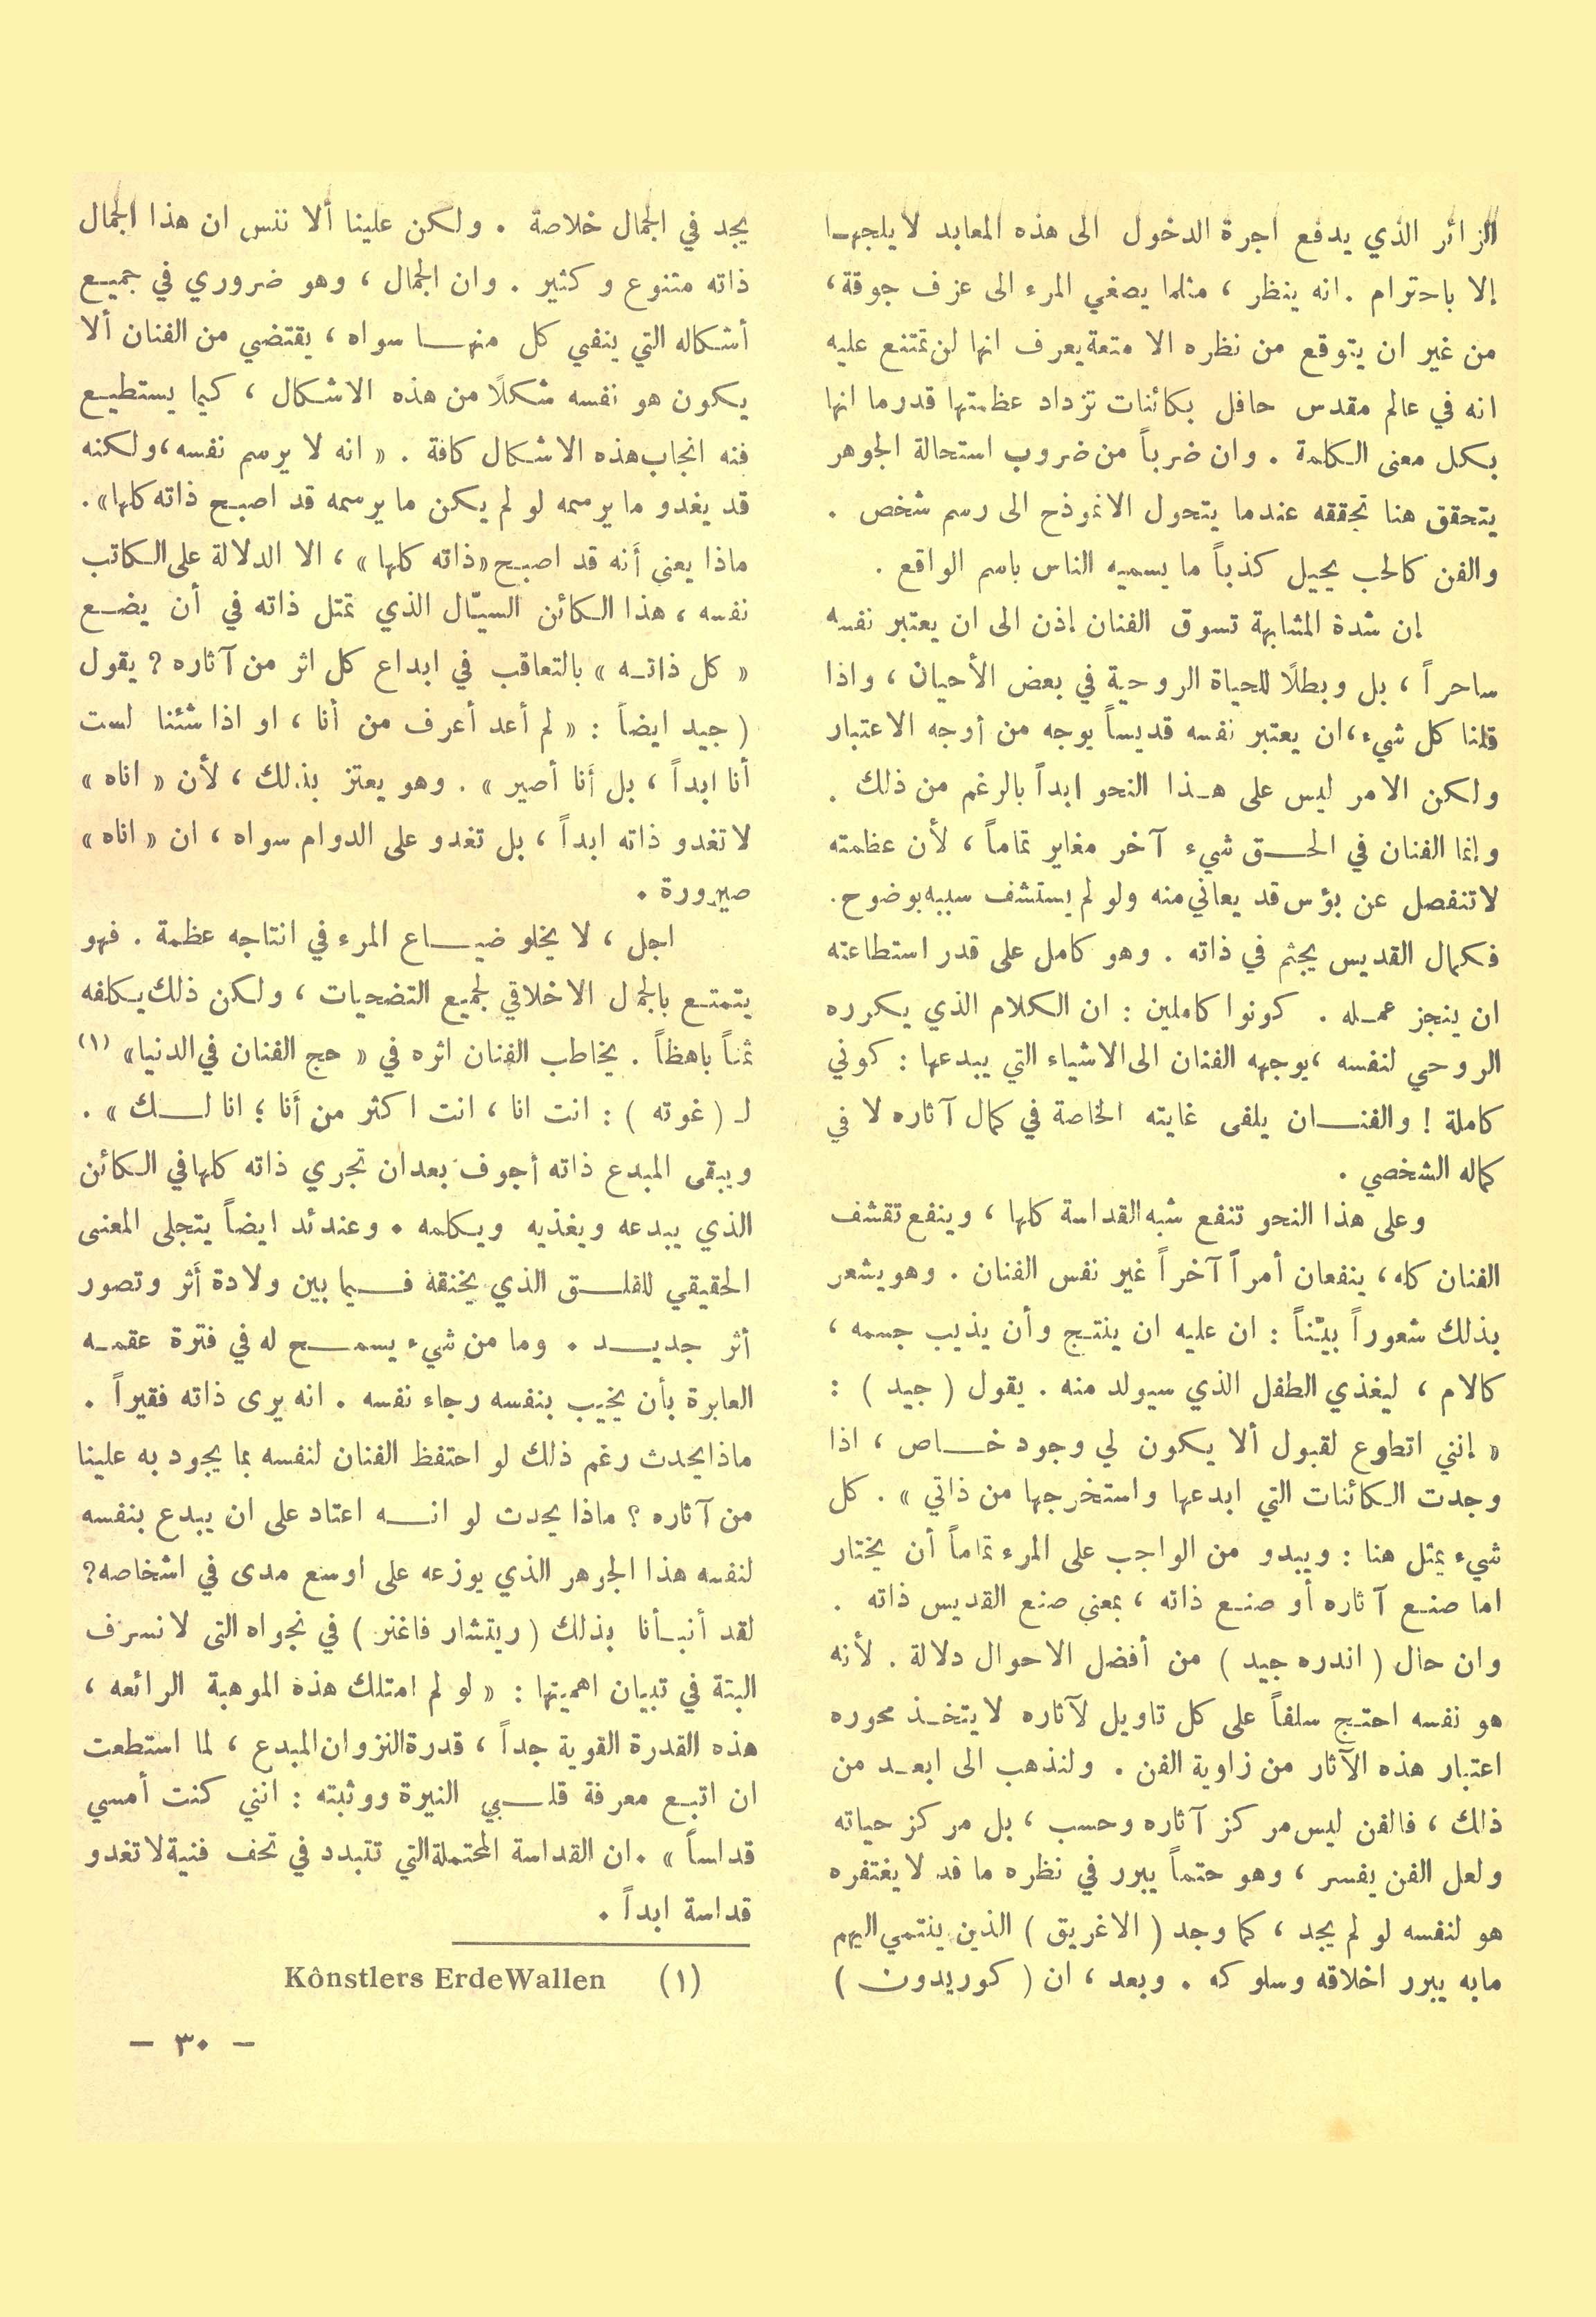 الزائر الذي يدفع اجرة الدخول الى هذه المعابد لا يلجهـا
إلا باحترام . انه ينظر ، مثلما يصغي المرء الى عزف جوقة ،
من غير ان يتوقع من نظره الا متعة يعرف انها لن تمتنع عليه
انه في عالم مقدس حافل بكائنات تزداد عظمتها قدرما انها
بكل معنى الكلمة . وان ضرباً من ضروب استحالة الجوهر
يتحقق هنا تحققه عندما يتحول الانموذج الى رسم شخص .
والفن كالحب يحيل كذباً ما يسميه الناس باسم الواقع .
إن شدة المشابهة تسوق الفنان إذن الى ان يعتبر نفسه
ساحراً ، بل وبطلًا للحياة الروحية في بعض الأحيان ، واذا
قلنا كل شيء ، ان يعتبر نفسه قديساً بوجه من أوجه الاعتبار
ولكن الامر ليس على هـذا النحو ابداً بالرغم من ذلك .
وإنما الفنان في الحـق شيء آخر مغاير تماماً ، لأن عظمته
لا تنفصل عن بؤس قد يعاني منه ولو لم يستشف سببه بوضوح .
فكمال القديس يجثم في ذاته . وهو كامل على قدر استطاعته
ان ينجز عمـله . كونوا كاملين : ان الكلام الذي يكرره
الروحي لنفسه ، يوجهه الفنان الى الاشياء التي يبدعها : كوني
كاملة ! والفنـان يلفى غايته الخاصة في كمال آثاره لا في
كماله الشخصي .
وعلى هذا النحو تنفع شبه القداسة كلها ، وينفع تقشف
الفنان كله ، ينفعان أمراً آخراً غير نفس الفنان . وهو يشعر
بذلك شعوراً بيّناً : ان عليه ان ينتج وأن يذيب جسمه ،
كالام ، ليغذي الطفل الذي سيولد منه . يقول ( جيد ) :
« إنني اتطوع لقبول ألا يكون لي وجود خـاص ، اذا
وجدت الكائنات التي ابدعها واستخرجها من ذاتي » . كل
شيء يمثل هنا : ويبدو من الواجب على المرء تماماً أن يختار
اما صنع آثاره أو صنع ذاته ، بمعنى صنع القديس ذاته .
وان حال ( اندره جيد ) من أفضل الاحوال دلالة . لأنه
هو نفسه احتج سلفاً على كل تاويل لآثاره لا يتخـذ محوره
اعتبار هذه الآثار من زاوية الفن . ولنذهب الى ابعـد من
ذلك ، فالفن ليس مركز آثاره وحسب ، بل مركز حياته
ولعل الفن يفسر ، وهو حتماً يبرر في نظره ما قد لا يغتفره
هو لنفسه لو لم يجد ، كما وجد ( الاغريق ) الذين ينتمي اليهم
مابه يبرر اخلاقه وسلوكه . وبعد ، ان ( كوريدون )
يجد في الجمال خلاصة . ولكن علينا ألا ننس ان هذا الجمال
ذاته متنوع وكثير . وان الجمال ، وهو ضروري في جميع
أشكاله التي ينفي كل منهـا سواه ، يقتضي من الفنان ألا
يكون هو نفسه شكلًا من هذه الاشكال ، كيما يستطيع
فنه انجاب هذه الاشكال كافة . « انه لا يرسم نفسه ، ولكنه
قد يغدو ما يرسمه لو لم يكن ما يرسمه قد اصبح ذاته كلها » .
ماذا يعني أَنه قد اصبح « ذاته كلها » ، الا الدلالة على الكاتب
نفسه ، هذا الكائن السيّال الذي تمثل ذاته في أن يضـع
« كل ذاتـه » بالتعاقب في ابداع كل اثر من آثاره ? يقول
( جيد ايضاً : « لم أعد أعرف من أنا ، او اذا شئنا لست
أنا ابداً ، بل أَنا أصير » . وهو يعتز بذلك ، لأن « اناه »
لا تغدو ذاته ابداً ، بل تغدو على الدوام سواه ، ان « اناه »
صيرورة .
اجل ، لا يخلو ضيـاع المرء في انتاجه عظمة . فهو
يتمتع بالجمال الاخلاقي لجميع التضحيات ، ولكن ذلك يكلفه
ثمناً باهظاً . يخاطب الفنان اثره في « حج الفنان في الدنيا » (١)
لـ ( غوته ) : انت انا ، انت اكثر من أَنا ؛ انا لـك » .
ويبقى المبدع ذاته أجوف بعد ان تجري ذاته كلها في الكائن
الذي يبدعه ويغذيه ويكلمه . وعندئد ايضاً يتجلى المعنى
الحقيقي للقلـق الذي يخنقه فـيما بين ولادة أَثر وتصور
أثر جديـد . وما من شيء يسمـح له في فترة عقمـه
العابرة بأن يخيب بنفسه رجاء نفسه . انه يرى ذاته فقيراً .
ماذا يحدث رغم ذلك لو احتفظ الفنان لنفسه بما يجود به علينا
من آثاره ؟ ماذا يحدث لو انـه اعتاد على ان يبدع بنفسه
لنفسه هذا الجوهر الذي يوزعه على اوسع مدى في اشخاصه ?
لقد أنبـأنا بذلك ( ريتشار فاغنر ) في نجواه التى لا نسرف
البتة في تبيان اهميتها : « لو لم امتلك هذه الموهبة الرائعه ،
هذه القدرة القوية جداً ، قدرة النزوان المبدع ، لما استطعت
ان اتبـع معرفة قلـبي النيرة ووثبته : انني كنت أمسي
قداساً » . ان القداسة المحتملة التي تتبدد في تحف فنية لا تغدو
قداسة ابداً .
(١) Kônstlers ErdeWallen
– ٣٠ –